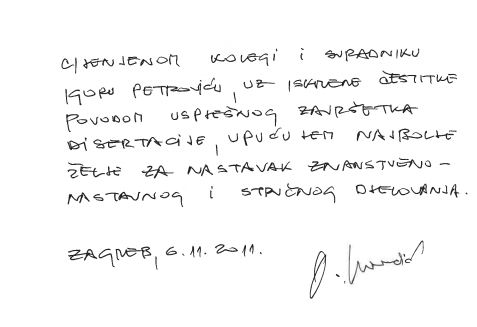 CIJENJENOM KOLEGI I SURADNIKU
IGORU PETROVIĆU, UZ ISKRENE ČESTITKE
POVODOM USPJEŠNOG ZAVRŠETKA
DISERTACIJE, UPUĆUJEM NAJBOLJE
ŽELJE ZA NASTAVAK ZNANSTVENO-
NASTAVNOG I STRUČNOG DJELOVANJA.
ZAGREB, 6.11.2011.